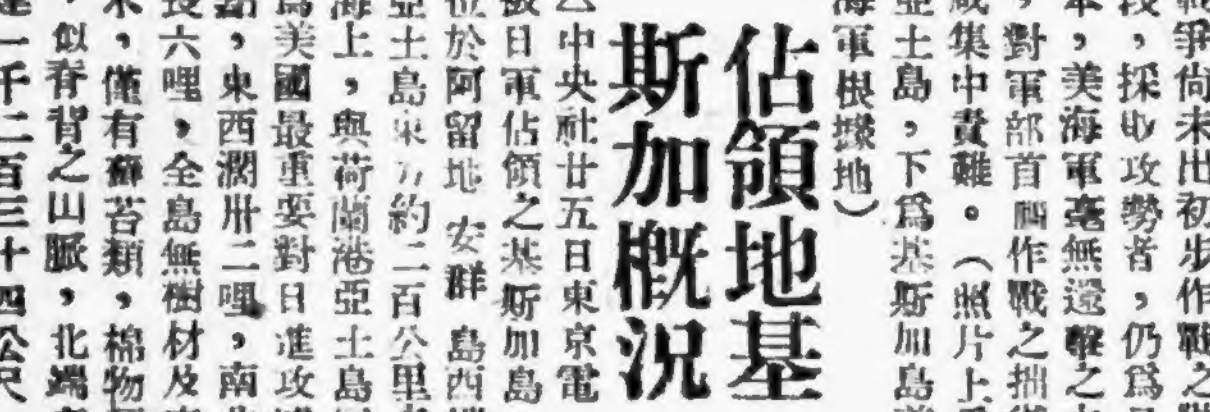 爭尚未出初步作戰之
段，採取攻勢者，仍爲
，美海軍毫無還擊之
，對軍部首腦作戰之拙
集中責難。（照片上
亞土島，下爲基斯加島
海軍根據地）
佔領地基
斯加概況
中央社廿五日東京電
被日軍佔領之基斯加島
位於阿留地安群島西
亞土島東方約二百公里
海上，與荷蘭港亞土島
爲美國最重要對日進攻
，東西濶卅二哩，南
六哩，全島無樹材及
，僅有蘚苔類，棉物
似脊背之山脈，北端
一千二百三十四公尺